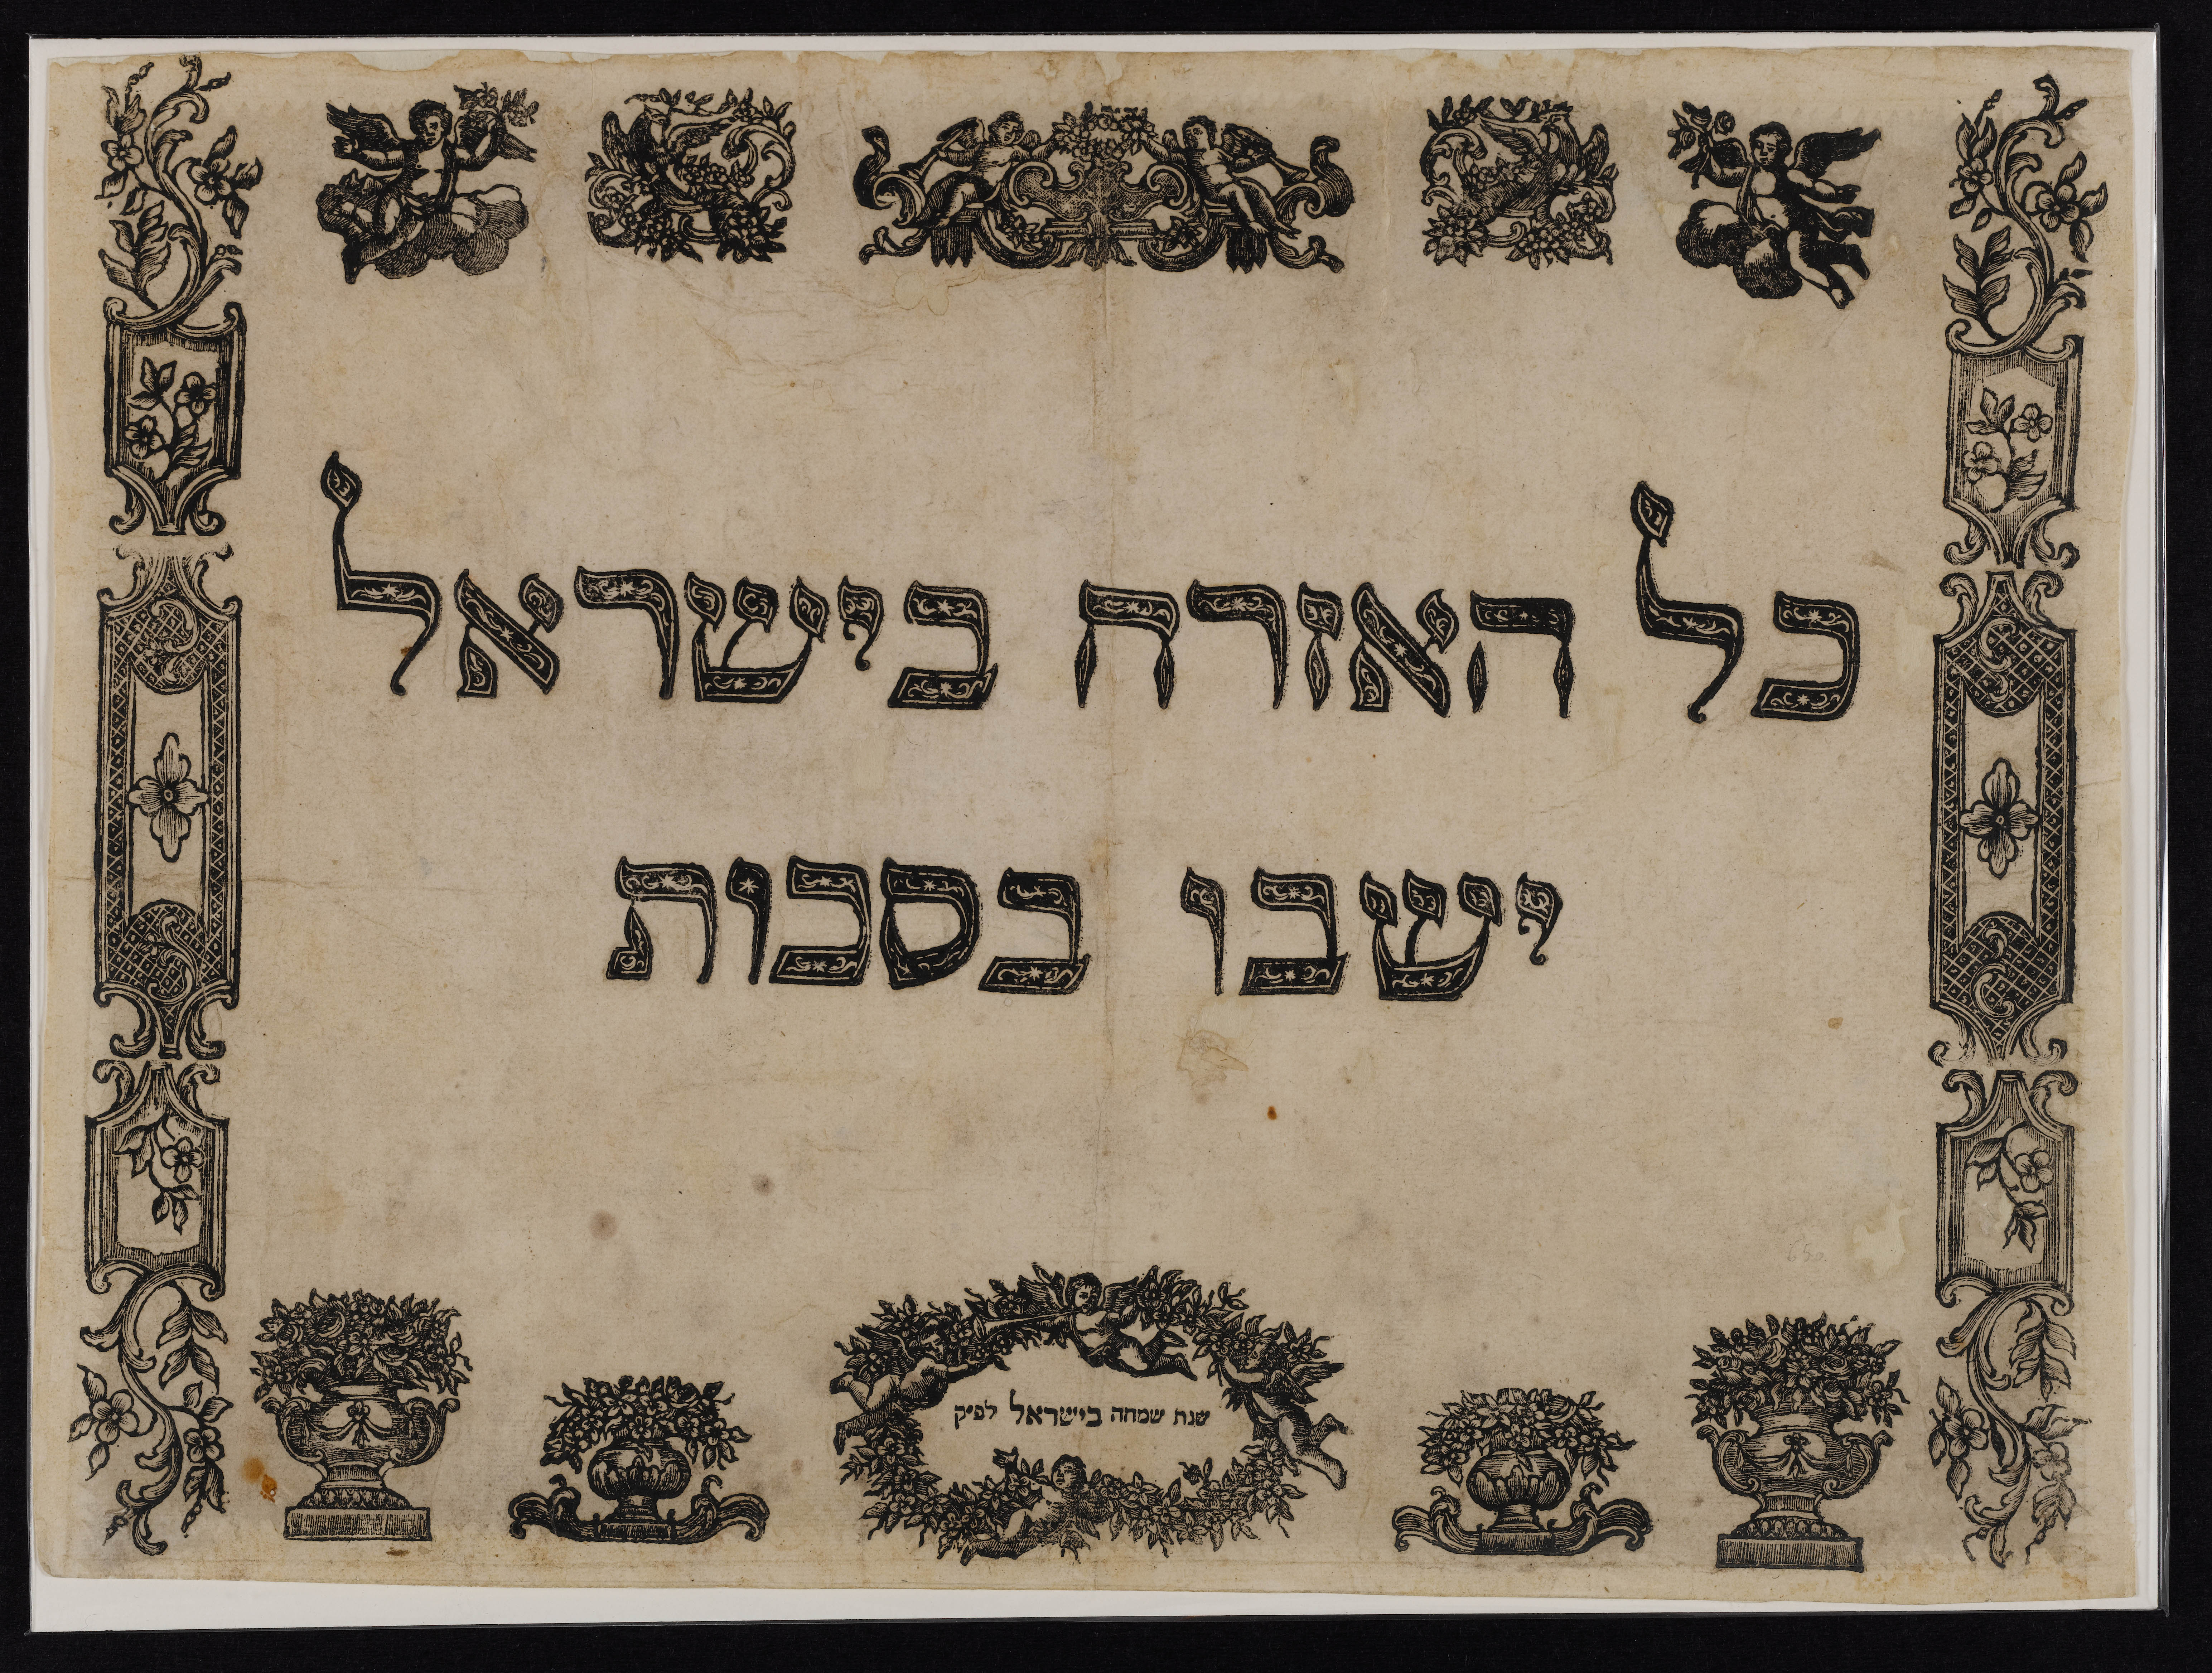 כל האזרח בישראל
ישבו בסכות
שנת שמחה בישראל לפ״ק